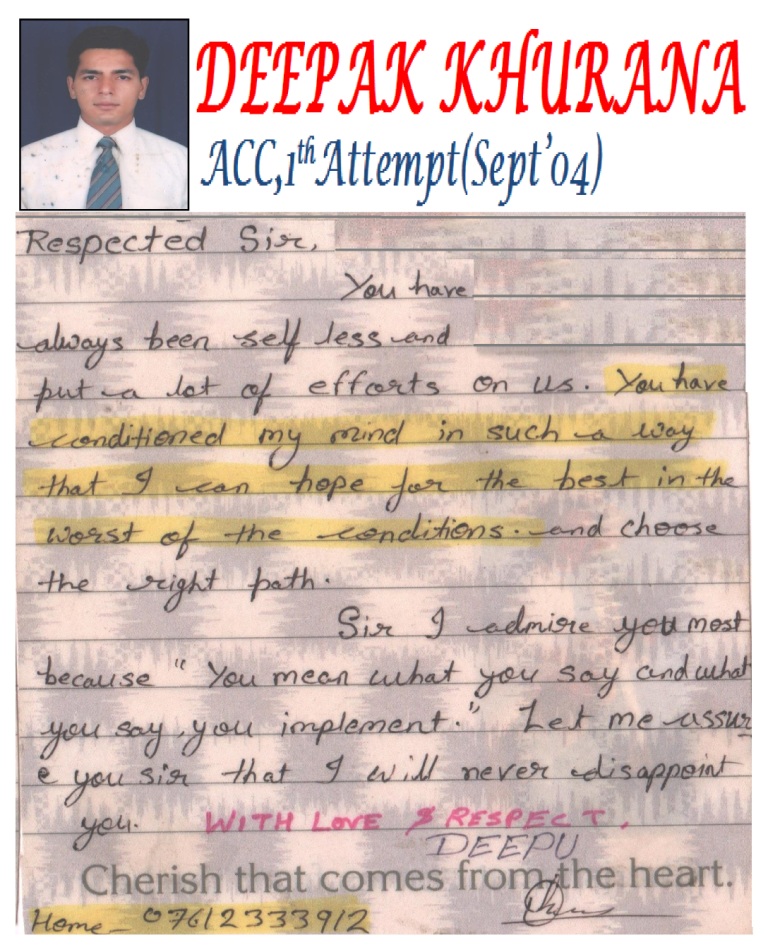 DEEPAK KHURANA
ACC,1th Attempt(Sept'04)
Respected Sir,
You have
always been self less and
put a lot of efforts on us. You have
conditioned my mind in such a way
that I can hope for the best in the
worst of the conditions. and choose
the right path.
Sir I admire you most
because "You mean what you say and what
you say, you implement." Let me assur
e you sir that I will never disappoint
you. WITH LOVE & RESPECT,
DEEPU
Cherish that comes from the heart.
Home - 07612333912